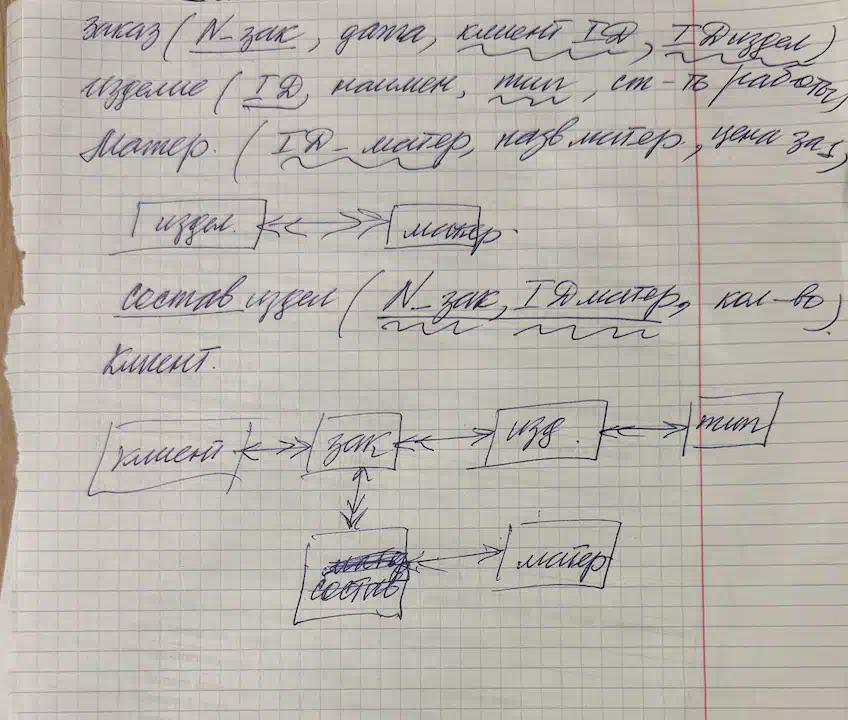 заказ ( N_зак, дата, клиент ID, ID издел)
изделие ( ID, наимен, тип, ст-ть работы,
Матер. ( ID_матер, назв матер., цена за 1,
издел. матер.
состав издел ( N_зак, ID матер, кол-во)
Клиент.
клиент зак изд. тип
состав матер